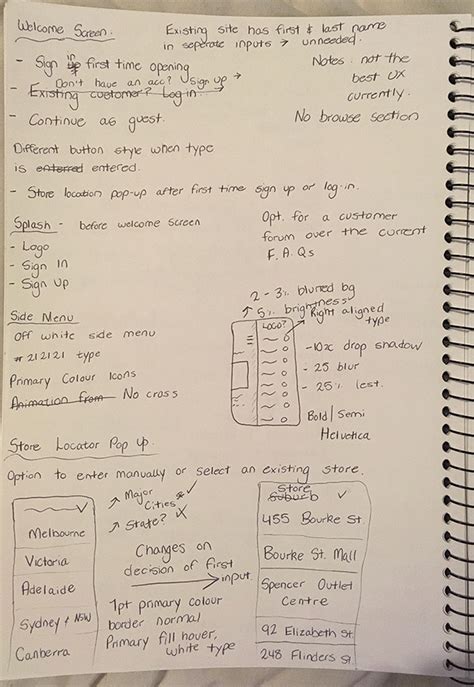 Welcome Screen.
Existing site has first & last name
in seperate inputs → unneeded.
- Sign up in first time opening
Don't have an acc? Sign up →
- Existing customer? Log in. →
- Continue as guest.
Notes: not the
best UX
currently.
No browse section
Different button style when type
is entered entered.
- Store location pop-up after first time sign up or log-in.
Splash - before welcome screen
- Logo
- Sign In
- Sign Up
Opt. for a customer
forum over the current
F.A.Qs
Side Menu
Off white side menu
# 212121 type
Primary Colour Icons
Animation from No cross
2-3% blured bg
↑ 5% brightness
Right aligned
type
LOGO?
-10x drop shadow
- 25 blur
- 25%
Bold / Semi
Helvetica
Store Locator Pop Up.
Option to enter manually or select an existing store.
Melbourne
Victoria
Adelaide
Sydney & NSW
Canberra
↗ Major
Cities ✓
↗ State? X
Changes on
decision of first
input
1pt primary colour
border normal
Primary fill hover,
white type
Store
Suburb ✓
455 Bourke St
Bourke St. Mall
Spencer Outlet
Centre
92 Elizabeth St.
248 Flinders St.